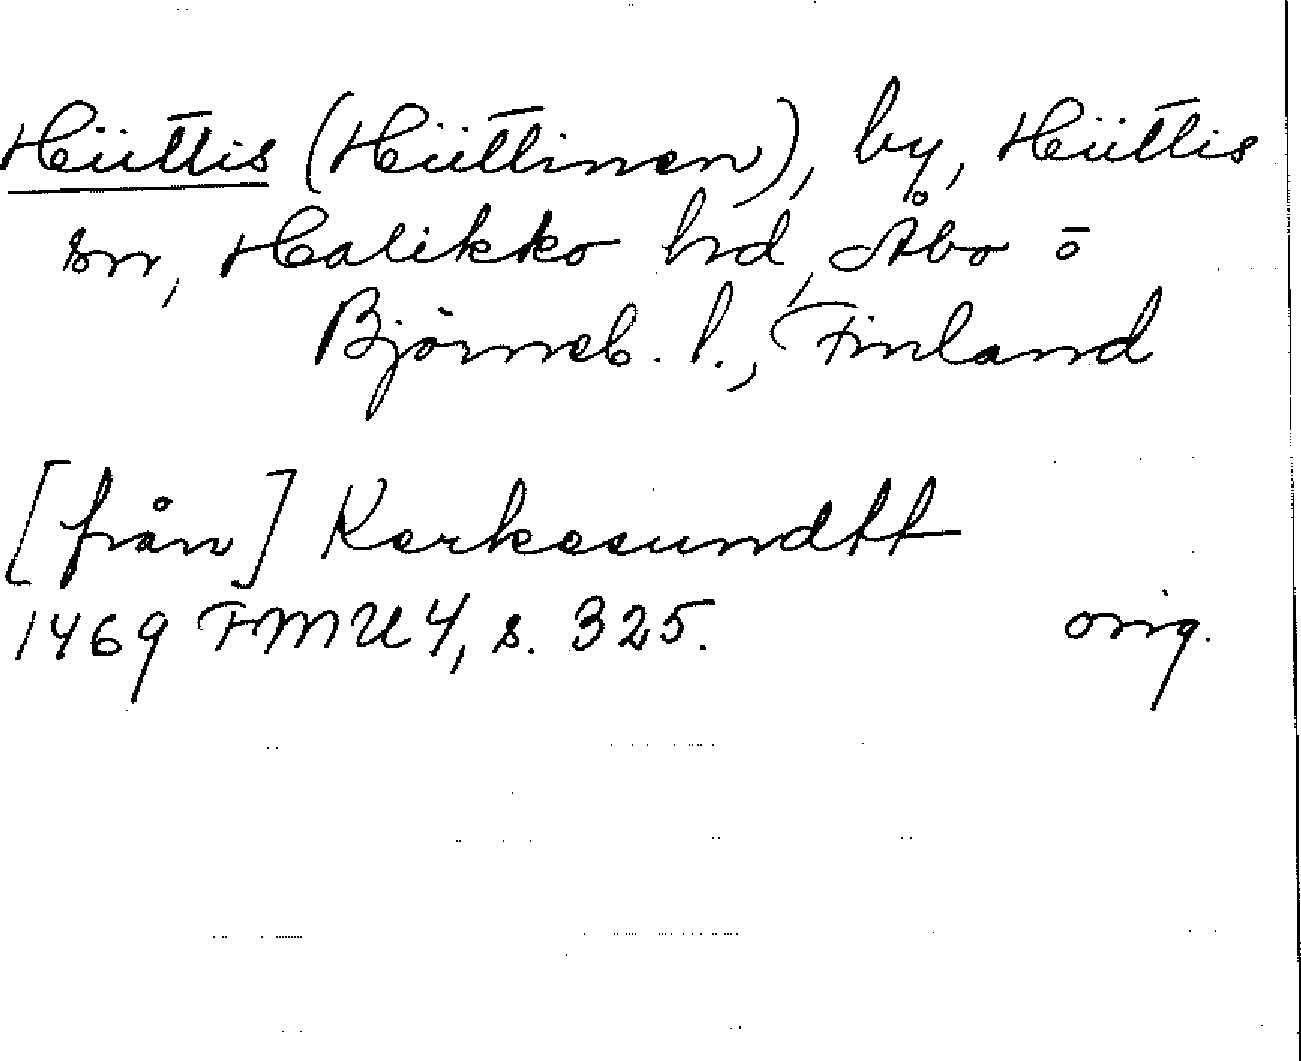 Hiittis (Hiittinen), by, Hiittis
sn, Halikko hd, Åbo o
Björneb. l., Finland
[från] Kerkesundtt
1469 FMU 4, s. 325. orig.